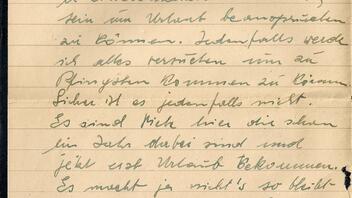 sein um Urlaub beanspruchen
zu können. Jedenfalls werde
ich alles versuchen um zu
Pfingsten kommen zu können.
Sicher ist es jedenfalls nicht.
Es sind hier die schon
ein Jahr dabei sind und
jetzt erst Urlaub bekommen.
Es macht ja nicht's so bleibt